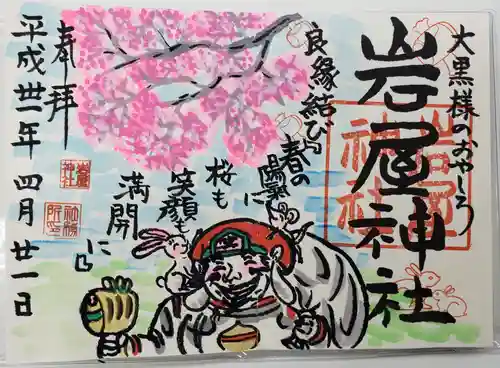 大黒様のおやしろ
岩屋神社
良縁結び
春の
陽気に
桜も
笑顔も
満開
に
奉拝
平成卅一年四月廿一日
岩屋
神社